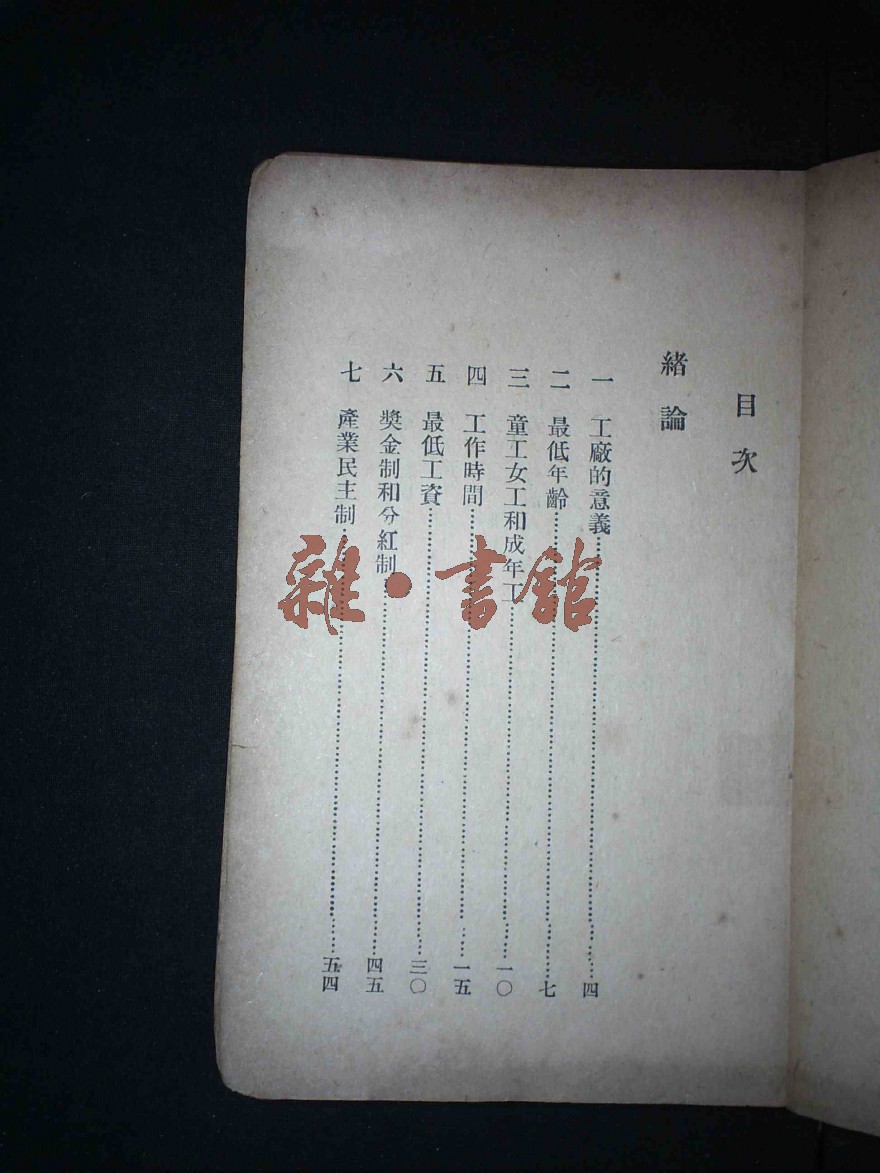 目次
緒論
一 工廠的意義……四
二 最低年齡……七
三 童工女工和成年工……一〇
四 工作時間……一五
五 最低工資……三〇
六 獎金制和分紅制……四五
七 產業民主制……五四
雜·書館